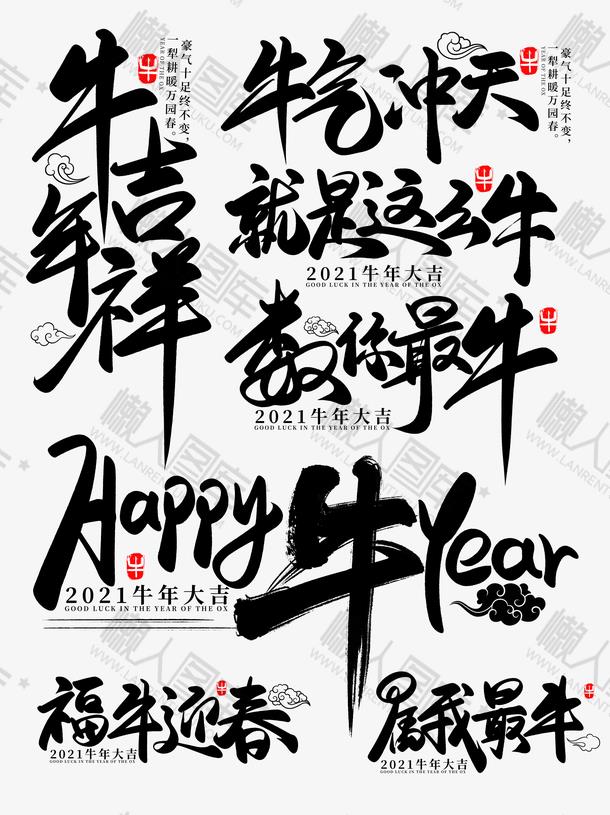 牛年
吉祥
牛
豪气十足终不变，
一犁耕暖万园春。
YEAR OF THE OX
牛气冲天
牛
豪气十足终不变，
一犁耕暖万园春。
YEAR OF THE OX
就是这么牛
牛
2021牛年大吉
GOOD LUCK IN THE YEAR OF THE OX
数你最牛
牛
2021牛年大吉
GOOD LUCK IN THE YEAR OF THE OX
Happy牛Year
牛
2021牛年大吉
GOOD LUCK IN THE YEAR OF THE OX
福牛迎春
牛
2021牛年大吉
GOOD LUCK IN THE YEAR OF THE OX
属我最牛
牛
2021牛年大吉
GOOD LUCK IN THE YEAR OF THE OX
懒人图库
WWW.LANRENTUKU.COM